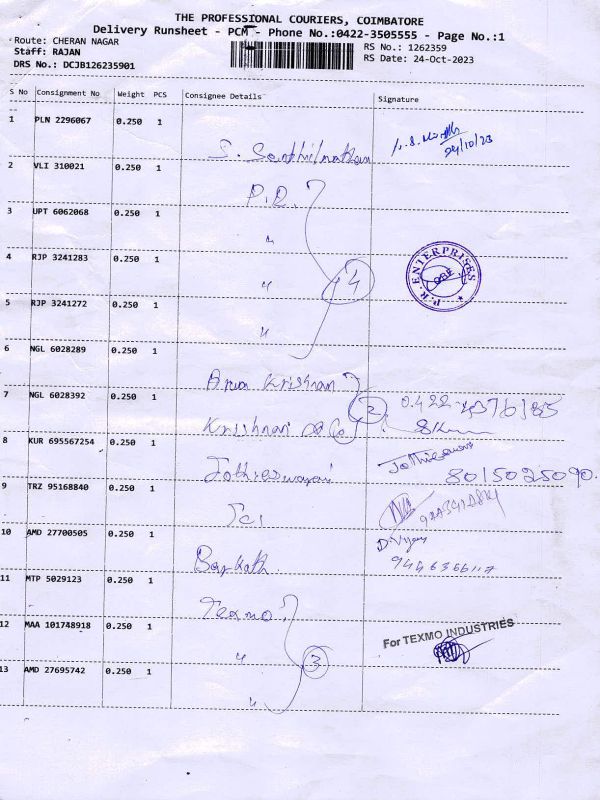 THE PROFESSIONAL COURIERS, COIMBATORE
Delivery Runsheet - PCM - Phone No.:0422-3505555 - Page No.:1
Route: CHERAN NAGAR
RS No.: 1262359
Staff: RAJAN
RS Date: 24-Oct-2023
DRS No.: DCJB126235901
S No Consignment No Weight PCS Consignee Details Signature
1 PLN 2296067 0.250 1 S. Senthilnathan
24/10/23
2 VLI 310021 0.250 1 P.R.
3 UPT 6062068 0.250 1 "
4 RJP 3241283 0.250 1 " 4 P.R. ENTERPRISES
5 RJP 3241272 0.250 1 "
6 NGL 6028289 0.250 1 Arun Krishnan
7 NGL 6028392 0.250 1 Krishnan & Co 2
8 KUR 695567254 0.250 1 Jothieswari Jothieswari
8015025090.
9 TRZ 95168840 0.250 1 Tci
10 AMD 27700505 0.250 1 Barkath D. Vijay
11 MTP 5029123 0.250 1 Texmo
12 MAA 101748918 0.250 1 " 3 For TEXMO INDUSTRIES
13 AMD 27695742 0.250 1 "